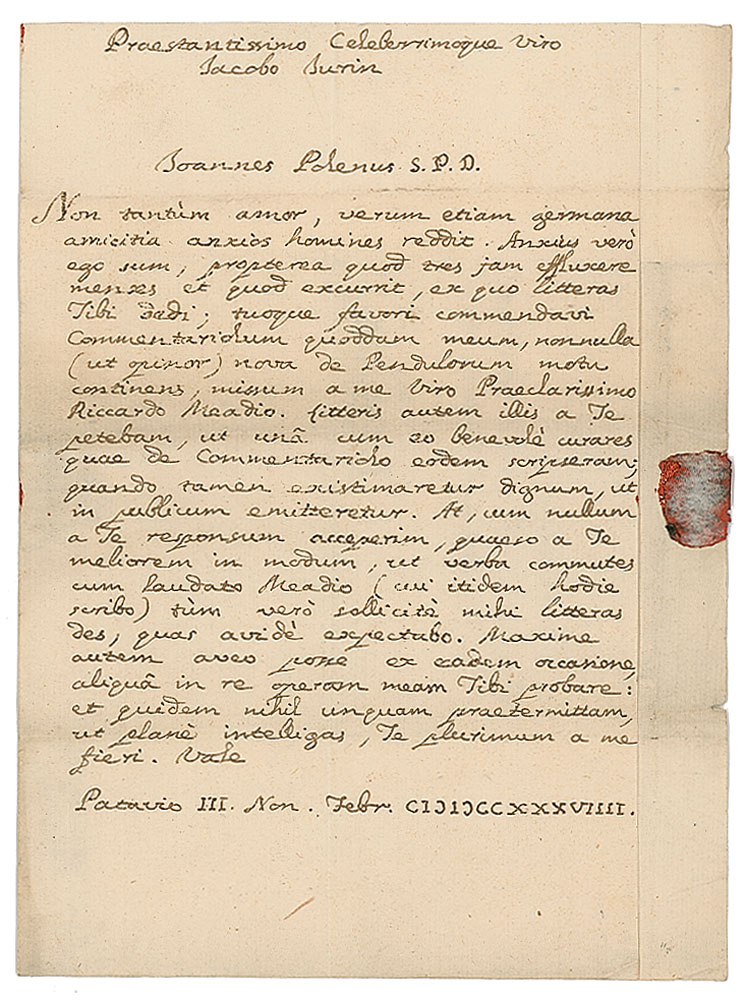 Praestantissimo Celeberrimoque Viro
Jacobo Jurin
Joannes Polenus S. P. D.
Non tantùm amor, verum etiam germana
amicitia anxios homines reddit. Anxius verò
ego sum, propterea quod tres jam effluxere
menses et quod excurrit, ex quo litteras
Tibi dadi; tuoque favori commendavi
Commentariolum quoddam meum, nonnulla
(ut opinor) nova de Pendulorum motu
continens, missum a me Viro Praeclarissimo
Riccardo Meadio. Litteris autem illis a Te
petebam, ut unâ cum eo benevolè curares
quae de Commentariolo eidem scripseram;
quando tamen existimaretur dignum, ut
in publicum emitteretur. At, cum nullum
a Te responsum acceperim, quaeso a Te
meliorem in modum, ut verba commutes
cum laudato Meadio (cui itidem hodie
scribo) tùm verò sollicitè mihi litteras
des, quas avidè expectabo. Maxime
autem aveo posse ex eadem occasione,
aliquâ in re operam meam Tibi probare:
et quidem nihil unquam praetermittam,
ut planè intelligas, Te plurimum a me
fieri. Vale
Patavio III. Non. Febr. CIƆIƆCCXXXVIIII.